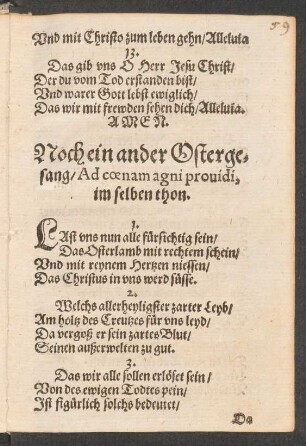 59
Vnd mit Christo zum leben gehn/Alleluia
13.
Das gib vns O Herr Jesu Christ/
Der du vom Tod erstanden bist/
Vnd warer Gott lebst ewiglich/
Das wir mit frewden sehen dich/Alleluia.
AMEN.
Noch ein ander Osterge-
sang/Ad cœnam agni prouidi,
im selben thon.
1.
LAst vns nun alle fürsichtig sein/
Das Osterlamb mit rechtem schein/
Vnd mit reynem Hertzen niessen/
Das Christus in vns werd süsse.
2.
Welchs allerheyligster zarter Leyb/
Am holtz des Creutzes für vns leyd/
Da vergoß er sein zartes Blut/
Seinen außerwelten zu gut.
3.
Das wir alle sollen erlöset sein/
Von des ewigen Todtes pein/
Ist figürlich solchs bedeutet/
Da